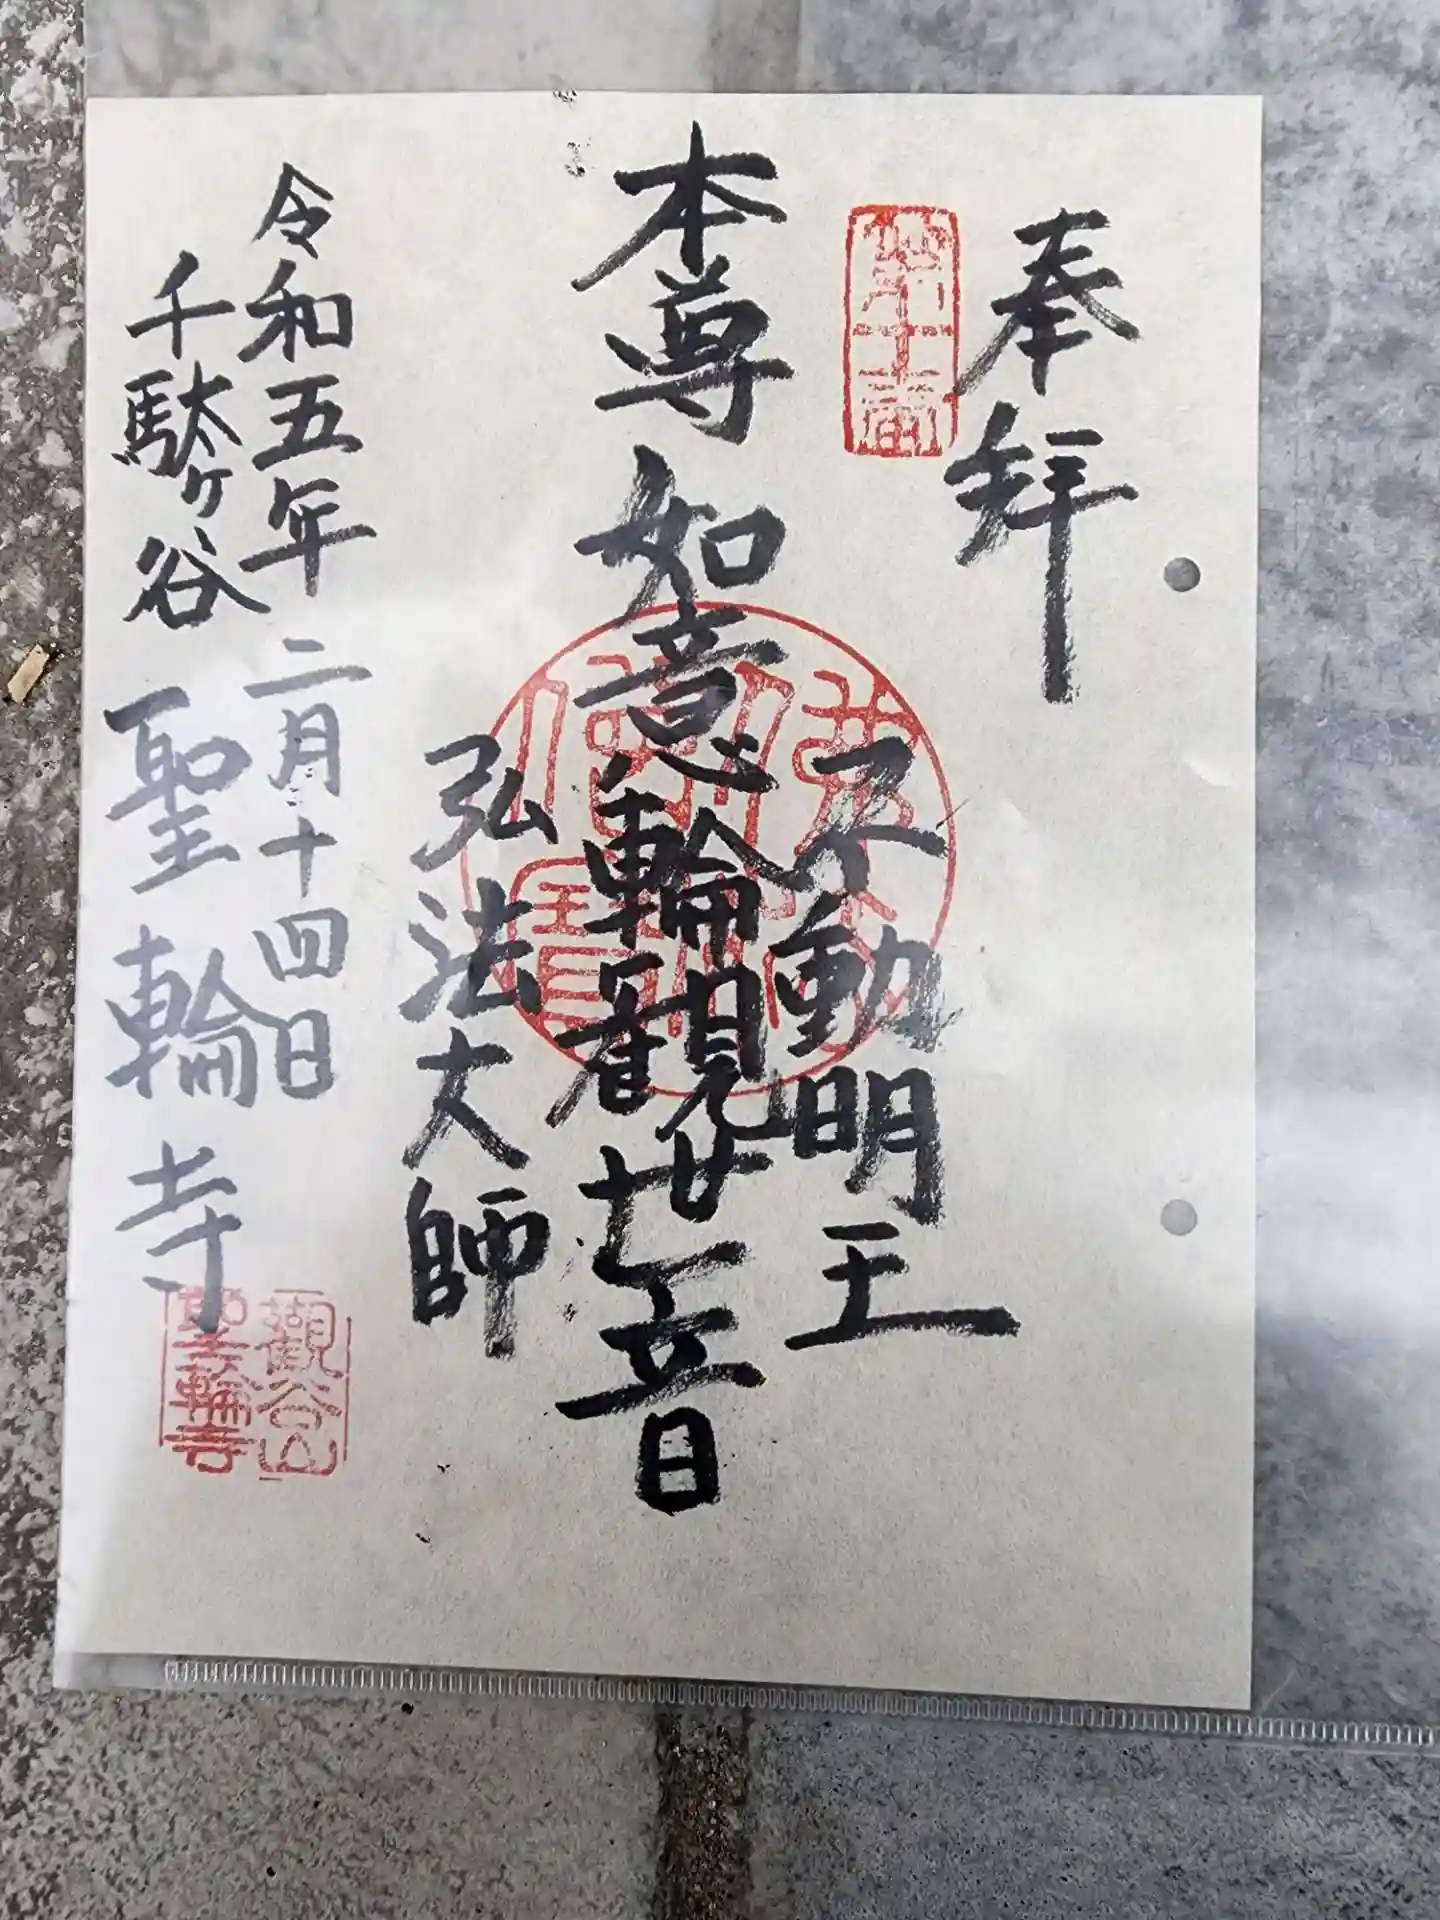 奉拝
第十番
不動明王
本尊如意輪観世音
弘法大師
令和五年二月十四日
千駄ヶ谷 聖輪寺
觀谷山
聖輪寺